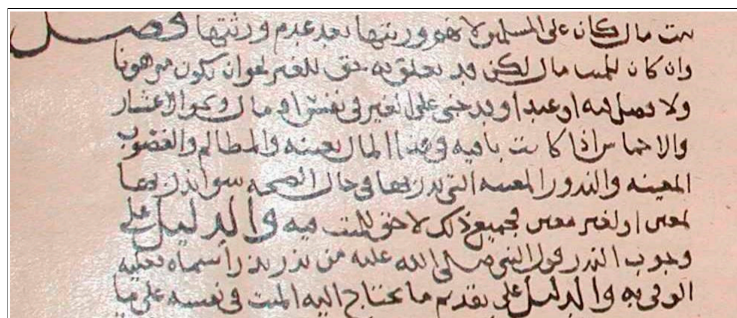 بيت مال كان على المسلمين لانهم ورثتها بعد عدم ورثتها فصل
وان كان للميت مال لكن قد تعلق به حق للغير نحو ان يكون مرهونا
ولا فضل فيه او عبدا وقد جنى على الغير في نفس او مال ونحو الاعشار
والاخماس اذا كانت باقيه وهذا المال بعينه والمظالم والغصوب
المعينه والنذور المعينه التي نذر بها في حال الصحه سوا نذر بها
لمعين او لغير معين فجميع ذلك لا حق للميت فيه والدليل على
وجوب النذر قول النبي صلى الله عليه من نذر نذرا سماه فعليه
الوفى به والدليل على تقديم ما يحتاج اليه الميت في نفسه على ما